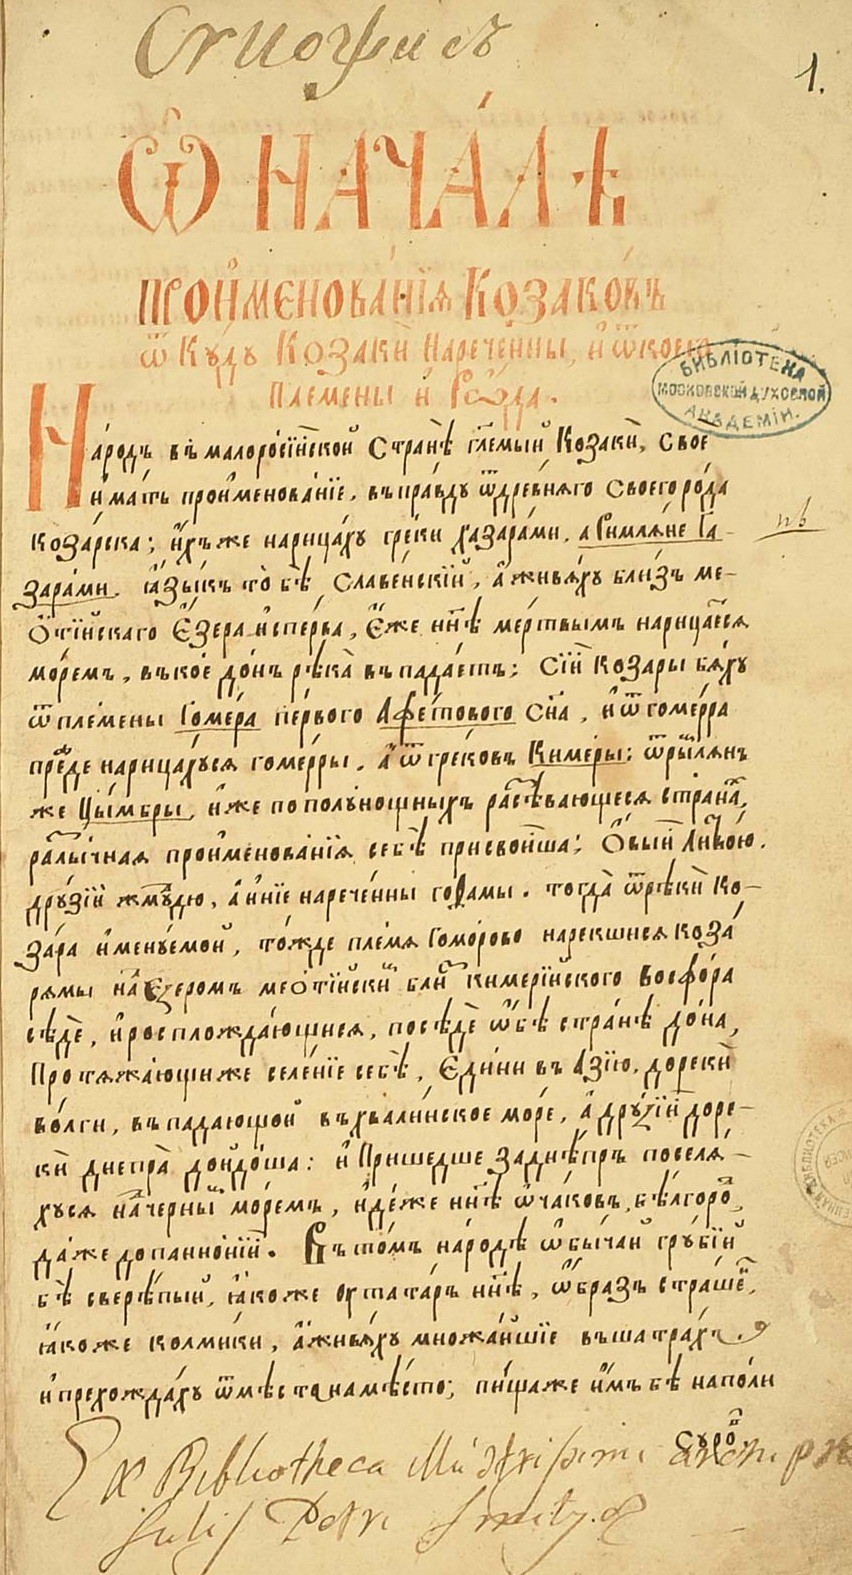 1.
Ѿ НАЧА́ЛѢ
ПРОИ́МЕНОВА́НЇѦ КОЗАКО́ВЪ
ѿ Кꙋдꙋ Козакѝ Нарече́нны, и҆ ѿ коегѡ
Племены и҆ Рѡ́да.
БИБЛІОТЕКА
МОСКОВСКОЙ ДУХОВНОЙ
АКАДЕМІИ.
На́родъ въ малоросі́йской Странѣ̀ гл҃емый Козакѝ, Свое
и҆ма́тъ прои҆менова́нїе, въ пра́вдꙋ ѿ дре́внѧго Своего ро́да
коза́рска; и҆́хъ же нарица́хꙋ гре́ки хазара́ми, а Римлѧ́не Га-
зара́ми. ꙗ҆зы́къ то̀ бѣ̀ Славе́нскїй, а҆ живѧ́хꙋ бли́зъ ме-
ѻ҆ті́йскаго Е҆́зера и҆спе́рва, Е҆́же нн҃ѣ ме́ртвымъ нарица́есѧ
мо́ремъ, въ кое́ до́нъ рѣка̀ въпада́етъ; Сїѝ козары бѧ́хꙋ
ѿ пле́мены Гоме́ра пе́рвого Афе́тового Сн҃а, и҆ ѿ гоме́рра
пре́жде нарица́хꙋсѧ гоме́рры, а҆ ѿ гре́ковъ Киме́ры; ѿ ры́млѧнъ
же Цы́мбры, и҆́же по полꙋ́нощныхъ разсѣва́ющесѧ страна́х,
разли́чнаѧ прои҆менова́нїѧ себѣ̀ присвои́ша; Ѻ҆вы́и Литво́ю,
дрꙋ́зїи жмꙋ́дю, а҆ и҆нїе нарече́нны го́ѳамы. тогда̀ ѿ рѣкѝ Ко-
за́ра и҆менꙋ́емой, то́жде пле́мѧ Гомо́рово нарекшиесѧ коза́
рѧмы на́д Е҆зеромъ меѻті́йским бли́з кимері́йского Восфо́ра
сѣ́де, и҆ роспложда́ющиесѧ, посѣ́де ѡ҆бѣ̀ стра́нѣ до́на,
Протѧжа́ющиже селе́нїе себѣ̀, Е҆ди́ни въ Азїю, до рекѝ
во́лги, въпадающой въ хвали́нское мо́ре, а҆ дрꙋ́зїи до ре-
кѝ днепра̀ дойдо́ша: и҆ Прише́дше за днѣ́пръ поселѧ́-
хꙋсѧ на́д черны́м мо́ремъ, и҆дѣ́же нн҃ѣ ѡ҆ча́ковъ, бѣ́лгород,
да́же до панно́нїй. Въ то́мъ на́родѣ ѡ҆бы́чай грꙋ́бїй
бѣ̀ сверѣ́пый, ꙗ҆коже ᲂу҆ тата́ръ нн҃ѣ, ѡ҆́бразъ стра́шен,
ꙗ҆́коже колми́ки, а҆ живѧ́хꙋ множа́йшїе въ шатра́хъ
и҆ прехожда́хꙋ ѿ мѣ́ста на мѣ́сто; пи́ща же и҆́мъ бѣ̀ напо́ли
сꙋро́
Ex Bibliotheca
Petri